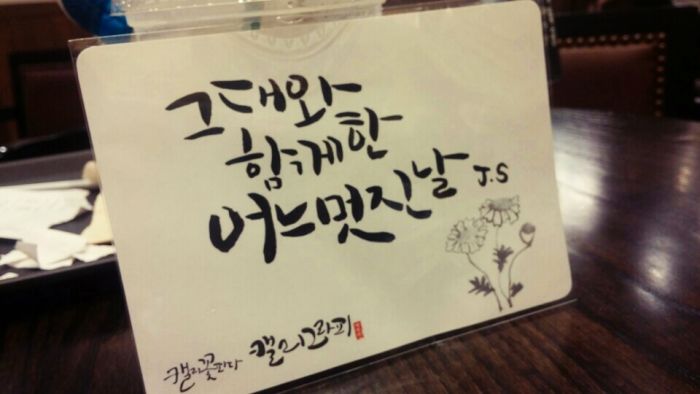 그대와
함께한
어느 멋진 날 J.S
캘리꽃피다 캘리그라피